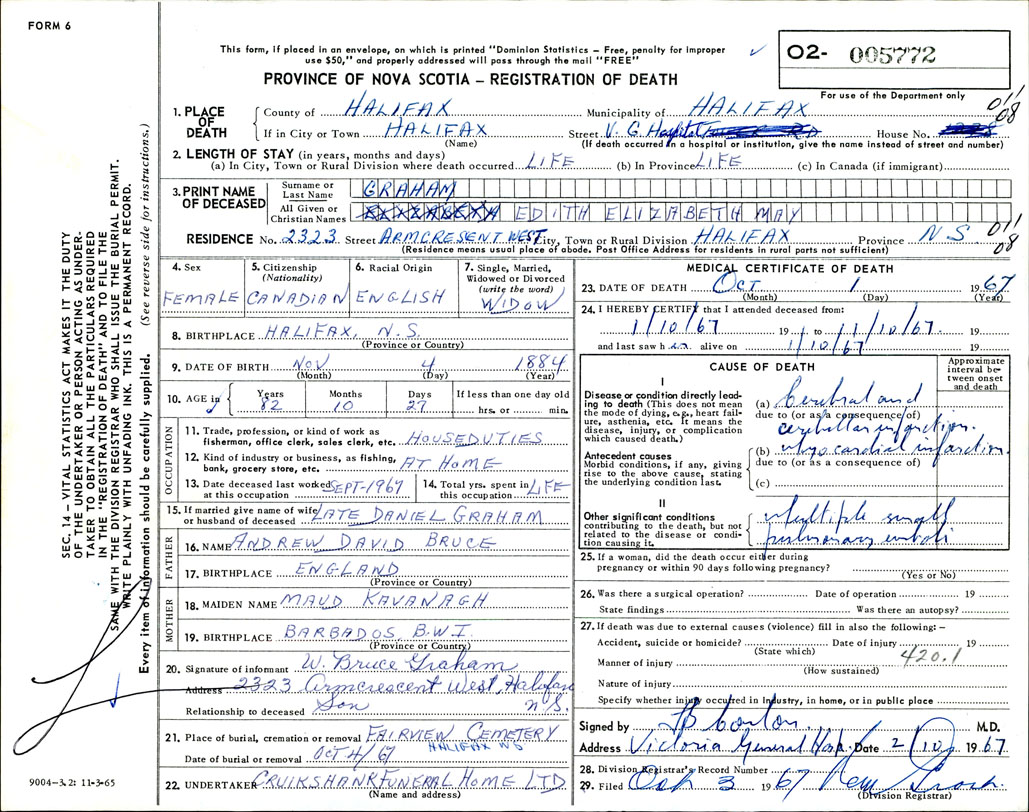 FORM 6
This form, if placed in an envelope, on which is printed "Dominion Statistics – Free, penalty for improper
use $50," and properly addressed will pass through the mail "FREE"
PROVINCE OF NOVA SCOTIA – REGISTRATION OF DEATH
02- 005772
For use of the Department only
011
08
1. PLACE OF DEATH
County of HALIFAX Municipality of HALIFAX
If in City or Town HALIFAX Street V. G. Hospital House No.
(Name) (If death occurred in a hospital or institution, give the name instead of street and number)
2. LENGTH OF STAY (in years, months and days)
(a) In City, Town or Rural Division where death occurred LIFE (b) In Province LIFE (c) In Canada (if immigrant)
3. PRINT NAME OF DECEASED
Surname or Last Name GRAHAM
All Given or Christian Names EDITH ELIZABETH MAY
RESIDENCE No. 2323 Street ARMCRESENT WEST City, Town or Rural Division HALIFAX Province N S
011
08
(Residence means usual place of abode. Post Office Address for residents in rural parts not sufficient)
4. Sex
FEMALE
5. Citizenship
(Nationality)
CANADIAN
6. Racial Origin
ENGLISH
7. Single, Married,
Widowed or Divorced
(write the word)
WIDOW
8. BIRTHPLACE HALIFAX, N.S.
(Province or Country)
9. DATE OF BIRTH NOV 4 1884
(Month) (Day) (Year)
10. AGE in Years Months Days If less than one day old
82 10 27 hrs. or min.
OCCUPATION
11. Trade, profession, or kind of work as
fisherman, office clerk, sales clerk, etc. HOUSEDUTIES
12. Kind of industry or business, as fishing,
bank, grocery store, etc. AT HOME
13. Date deceased last worked
at this occupation SEPT-1967
14. Total yrs. spent in
this occupation LIFE
15. If married give name of wife
or husband of deceased LATE DANIEL GRAHAM
FATHER
16. NAME ANDREW DAVID BRUCE
17. BIRTHPLACE ENGLAND
(Province or Country)
MOTHER
18. MAIDEN NAME MAUD KAVANAGH
19. BIRTHPLACE BARBADOS, B.W.I.
(Province or Country)
20. Signature of informant W. Bruce Graham
Address 2323 Armcrescent West, Halifax
N.S.
Relationship to deceased Son
21. Place of burial, cremation or removal FAIRVIEW CEMETERY
HALIFAX NS
Date of burial or removal OCT 4/67
22. UNDERTAKER CRUIKSHANK FUNERAL HOME LTD
(Name and address)
MEDICAL CERTIFICATE OF DEATH
23. DATE OF DEATH Oct 1 1967
(Month) (Day) (Year)
24. I HEREBY CERTIFY that I attended deceased from:
1/10/67 19 to 1/10/67 19
and last saw her alive on 1/10/67 19
CAUSE OF DEATH
Approximate interval between onset and death
I
Disease or condition directly leading to death (This does not mean the mode of dying, e.g., heart failure, asthenia, etc. It means the disease, injury, or complication which caused death.)
(a) Cerebral and
due to (or as a consequence of)
cerebellar infarction.
Antecedent causes
Morbid conditions, if any, giving rise to the above cause, stating the underlying condition last.
(b) myocardial infarction
due to (or as a consequence of)
(c)
II
Other significant conditions
contributing to the death, but not related to the disease or condition causing it.
multiple small
pulmonary emboli
25. If a woman, did the death occur either during
pregnancy or within 90 days following pregnancy?
(Yes or No)
26. Was there a surgical operation? Date of operation 19
State findings Was there an autopsy?
27. If death was due to external causes (violence) fill in also the following:–
Accident, suicide or homicide? Date of injury 19
(State which)
420.1
Manner of injury
(How sustained)
Nature of injury
Specify whether injury occurred in industry, in home, or in public place
Signed by M.D.
Address Victoria General Hosp. Date 2/10/ 1967
28. Division Registrar's Record Number
29. Filed Oct 3 1967
(Division Registrar)
SEC. 14 – VITAL STATISTICS ACT MAKES IT THE DUTY
OF THE UNDERTAKER OR PERSON ACTING AS UNDER-
TAKER TO OBTAIN ALL THE PARTICULARS REQUIRED
IN THE "REGISTRATION OF DEATH" AND TO FILE THE
SAME WITH THE DIVISION REGISTRAR WHO SHALL ISSUE THE BURIAL PERMIT.
WRITE PLAINLY WITH UNFADING INK. THIS IS A PERMANENT RECORD.
Every item of information should be carefully supplied. (See reverse side for instructions.)
9004–3.2: 11-3-65